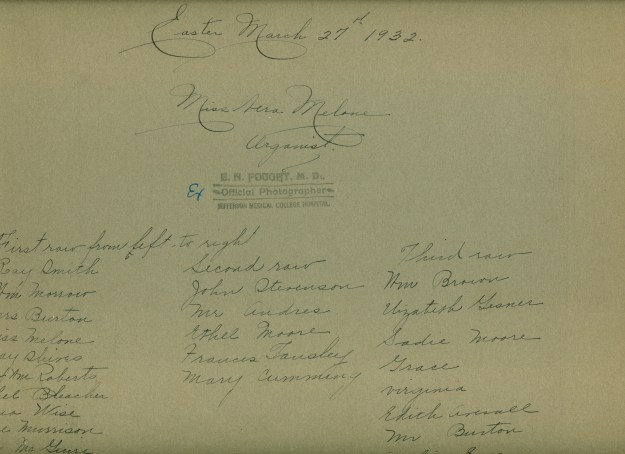 Easter March 27th 1932.
Miss Vera Melone
Organist.
Ex
E. H. FOUGHT, M. D.,
Official Photographer
JEFFERSON MEDICAL COLLEGE HOSPITAL.
First row from left to right
Ray Smith
Wm Morrow
Burton
Melone
Wm Roberts
Bleacher
Wise
Morrison
McGuire
Second row
John Stevenson
Mr Andres
Ethel Moore
Frances Tansley
Mary Cumming
Third row
Wm Brown
Elizabeth Gesner
Sadie Moore
Grace
Virginia
Edith
Mr Burton